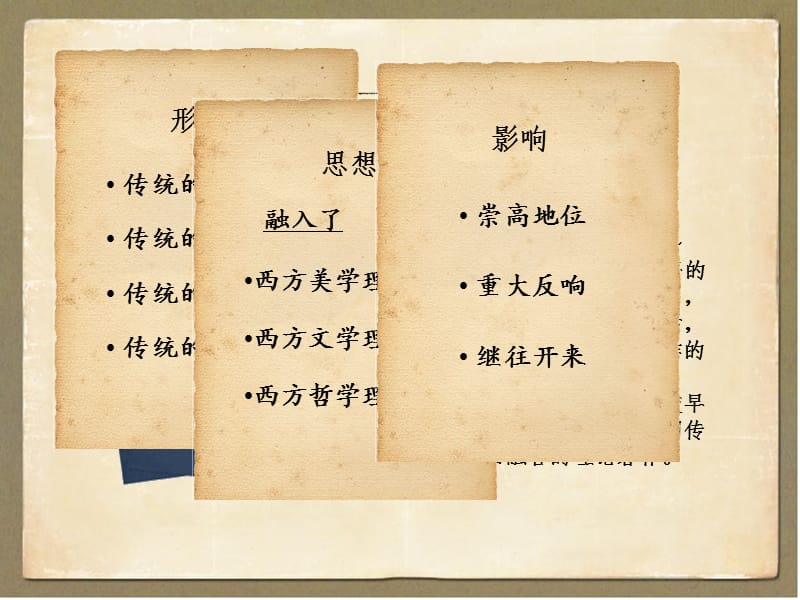 形
• 传统的
• 传统的
• 传统的
• 传统的
思想
融入了
•西方美学理
•西方文学理
•西方哲学理
影响
• 崇高地位
• 重大反响
• 继往开来
的
，
，
的
早
传